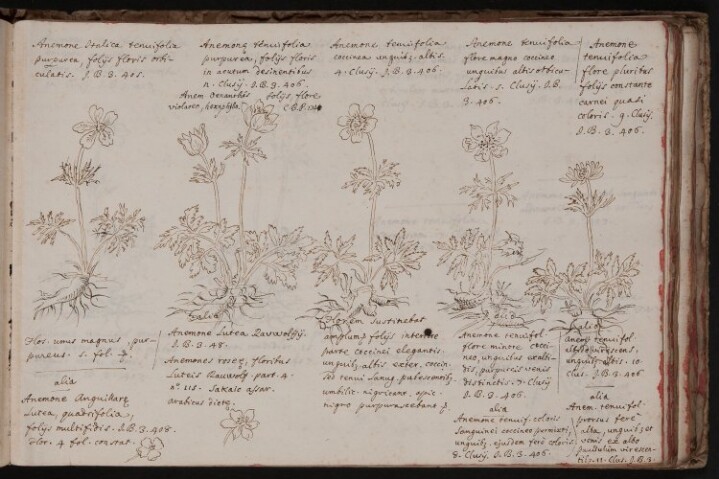 Anemone Italica tenuifolia
purpurea, folijs floris orbi-
culatis. J.B.3. 405.
Anemone tenuifolia
purpurea, folijs floris
in acutum desinentibus
Clusij. J.B.3.406.
Anem. folijs, flore
violaceo, hexaphylla. C.B.P.
Anemone tenuifolia
coccinea unguib. albis.
4. Clusij. J.B.3.406.
Anemone tenuifolia
flore magno coccineo
unguibus albis
5. Clusij. J.B.
3. 406.
Anemone
tenuifolia
flore pluribus
folijs constante
carnei quasi
coloris. 9. Clusij.
J.B.3. 406.
Flos unus magnus, pur-
pureus. 5. fol.
alia
Anemone
Lutea, quadrifolia,
folijs multifidis. J.B.3.408.
flor. 4 fol. constat.
alia
Anemone Lutea Rauwolfij.
J.B.3. 48.
Anemones roseę, floribus
Luteis Rauwolf. part. 4.
n.º 118.
arabicus dictę.
Florem sustinebat
amplum folijs
parte coccinei elegantis.
unguib. albis exter. coccin.
sed tenui lanug.
umbilic. nigricans, apic.
nigro
alia
Anemone tenuifol.
flore minore cocci-
neo, unguibus
dis, purpureis venis
distinctis. 7. Clusij
J.B.3. 406.
alia
Anemone tenuif. coloris
sanguinei coccineo permixti,
unguib. ejusdem ferè coloris
8. Clusij. J.B.3. 406.
alia
Anem. tenuifol.
unguib. albis. 10.
Clus. J.B.3. 406
alia
Anem. tenuifol.
prorsus ferè
alba, unguib. et
venis ex albo
paululum viresce-
tib. 11. Clus. J.B.3.